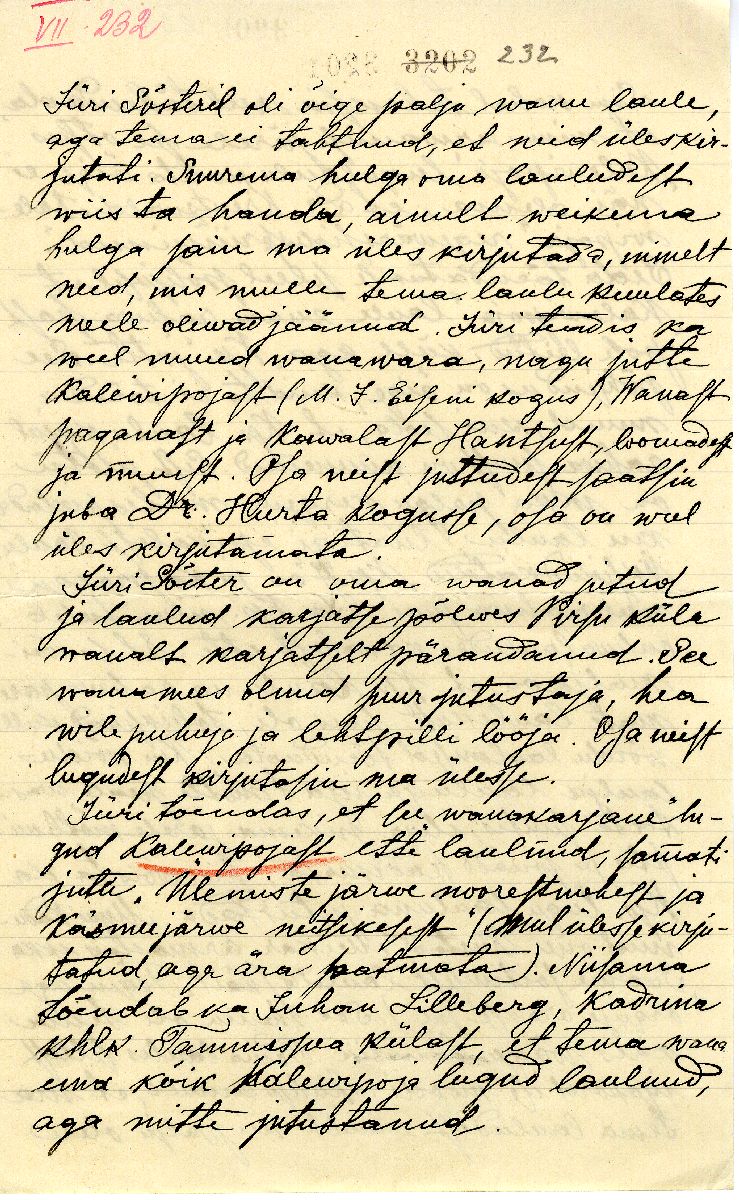 VII 232
3202 232
Jüri Sösteril oli õige palju wanu laule,
aga tema ei tahtnud, et neid üleskir-
jutati. Suurema hulga oma lauludest
wiis ta hauda, ainult weikema
hulga sain ma üles kirjutada, nimelt
need, mis mulle tema laulu kuulates
meele oliwad jäänud. Jüri teadis ka
weel muud wanawara, nagu jutte
Kalewipojast (M. J. Eiseni kogus), Wanast
paganast ja Kawalast Hantsust, loomadest
ja muust. Osa neist juttudest saatsin
juba Dr. Hurta kogusse, osa on weel
üles kirjutamata.
Jüri Söster on oma wanad jutud
ja laulud karjatse põlwes Pirsu küla
wanalt karjatselt pärandanud. See
wanamees olnud suur jutustaja, hea
wile puhuja ja lehtpilli lööja. Osa neist
lugudest kirjutasin ma ülesse.
Jüri tõendas, et see wanakarjane "lu-
gud Kalewipojast ette" laulnud, samati
jutu "Ülemiste järwe noorestmehest ja
Käsmu järwe neitsikesest" (Mul ülesse kirju-
tatud, aga ära saatmata). Niisama
tõendab ka Juhan Lilleberg, Kadrina
khlk. Tammispea külast, et tema wana
ema kõik Kalewipoja lugud laulnud,
aga mitte jutustanud.